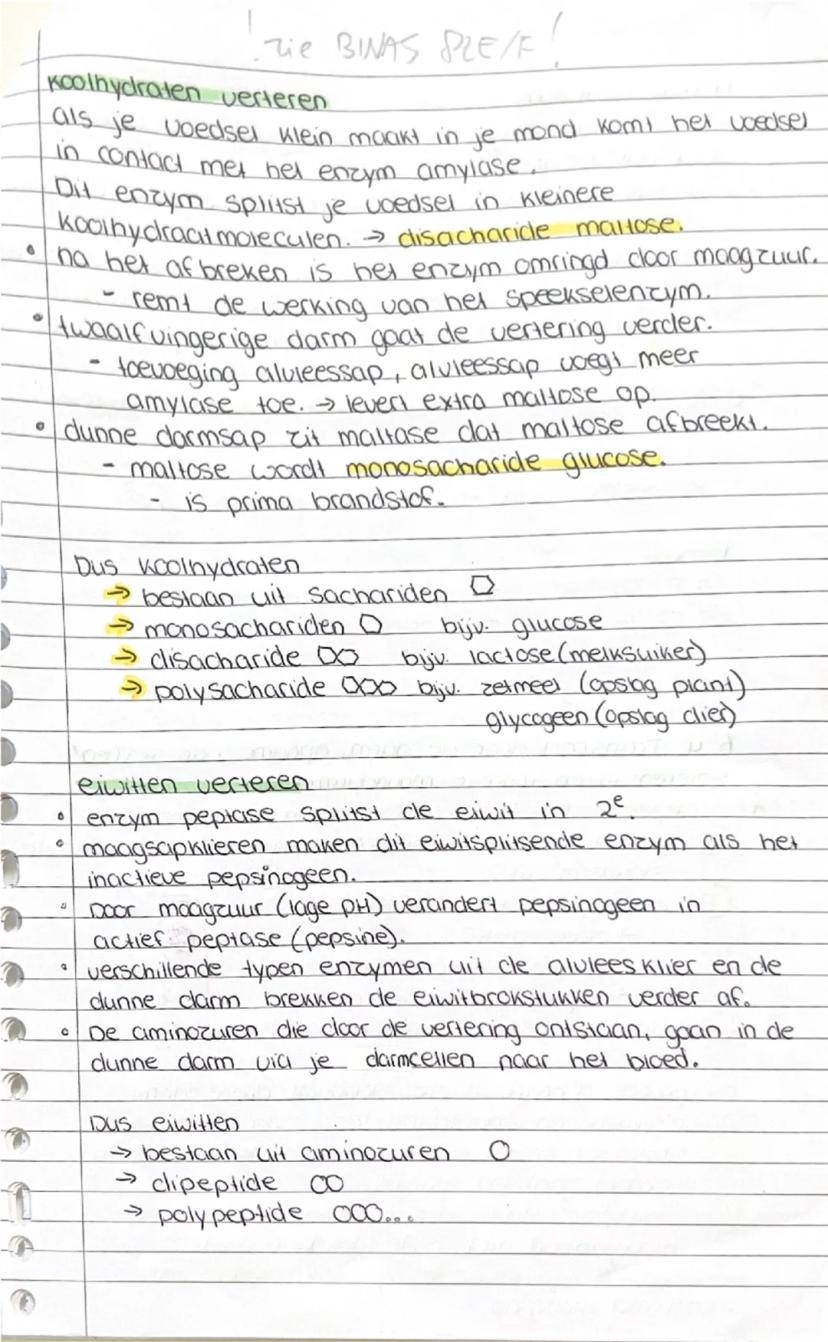 ! zie BINAS 82E/F !
Koolhydraten verteren
als je voedsel klein maakt in je mond komt het voedsel
in contact met het enzym amylase.
Dit enzym splitst je voedsel in kleinere
koolhydraatmoleculen. → disacharide maltose.
• na het afbreken is het enzym omringd door maagzuur.
- remt de werking van het speekselenzym.
• twaalfvingerige darm gaat de vertering verder.
- toevoeging alvleessap, alvleessap voegt meer
amylase toe. → levert extra maltose op.
• dunne darmsap zit maltase dat maltose afbreekt.
- maltose wordt monosacharide glucose.
- is prima brandstof.
Dus koolhydraten
→ bestaan uit sachariden
→ monosachariden bijv. glucose
→ disacharide bijv. lactose (melksuiker)
→ polysacharide bijv. zetmeel (opslag plant)
glycogeen (opslag dier)
eiwitten verteren
• enzym peptase splitst de eiwit in 2e.
• maagsapklieren maken dit eiwitsplitsende enzym als het
inactieve pepsinogeen.
• Door maagzuur (lage pH) verandert pepsinogeen in
actief peptase (pepsine).
• verschillende typen enzymen uit de alvleesklier en de
dunne darm brekken de eiwitbrokstukken verder af.
• De aminozuren die door de vertering ontstaan, gaan in de
dunne darm via je darmcellen naar het bloed.
Dus eiwitten
→ bestaan uit aminozuren
→ dipeptide
→ polypeptide ...